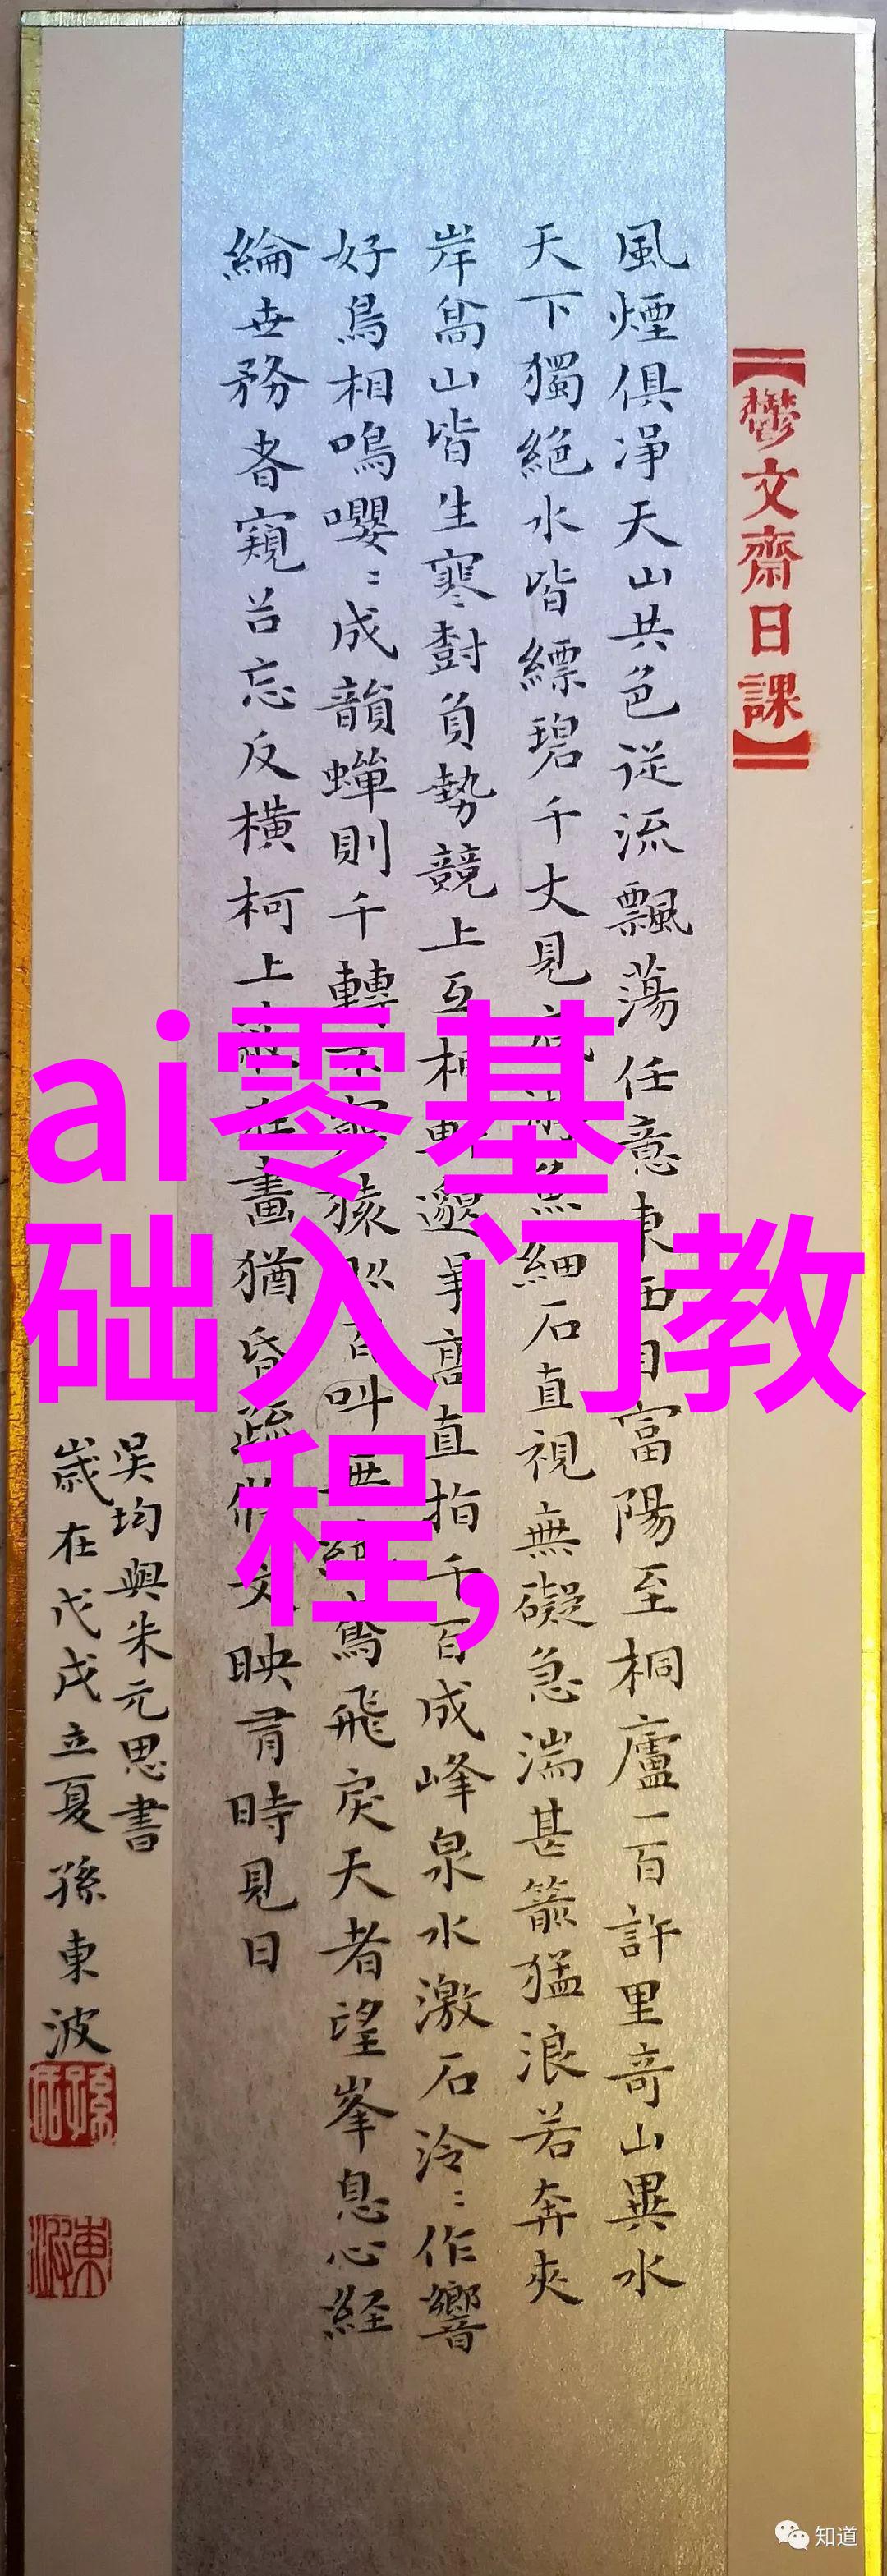 【鬱文齋日課】
風煙俱凈天山共色從流飄蕩任意東西自富陽至桐廬一百許里奇山異水
天下獨絕水皆縹碧千丈見底游魚細石直視無礙急湍甚箭猛浪若奔夾
岸髙山皆生寒樹負勢競上互相軒邈爭髙直指千百成峰泉水激石泠:作響
好鳥相鳴嚶:成韻蟬則千轉不窮猿則百叫無絕鳶飛戾天者望峯息心経
綸世務者窺谷忘反橫柯上蔽在晝猶昏疏條交映有時見日
吳均與朱元思書
歲在戊戌立夏孫東波
ai零基
础入门教
程,
知道